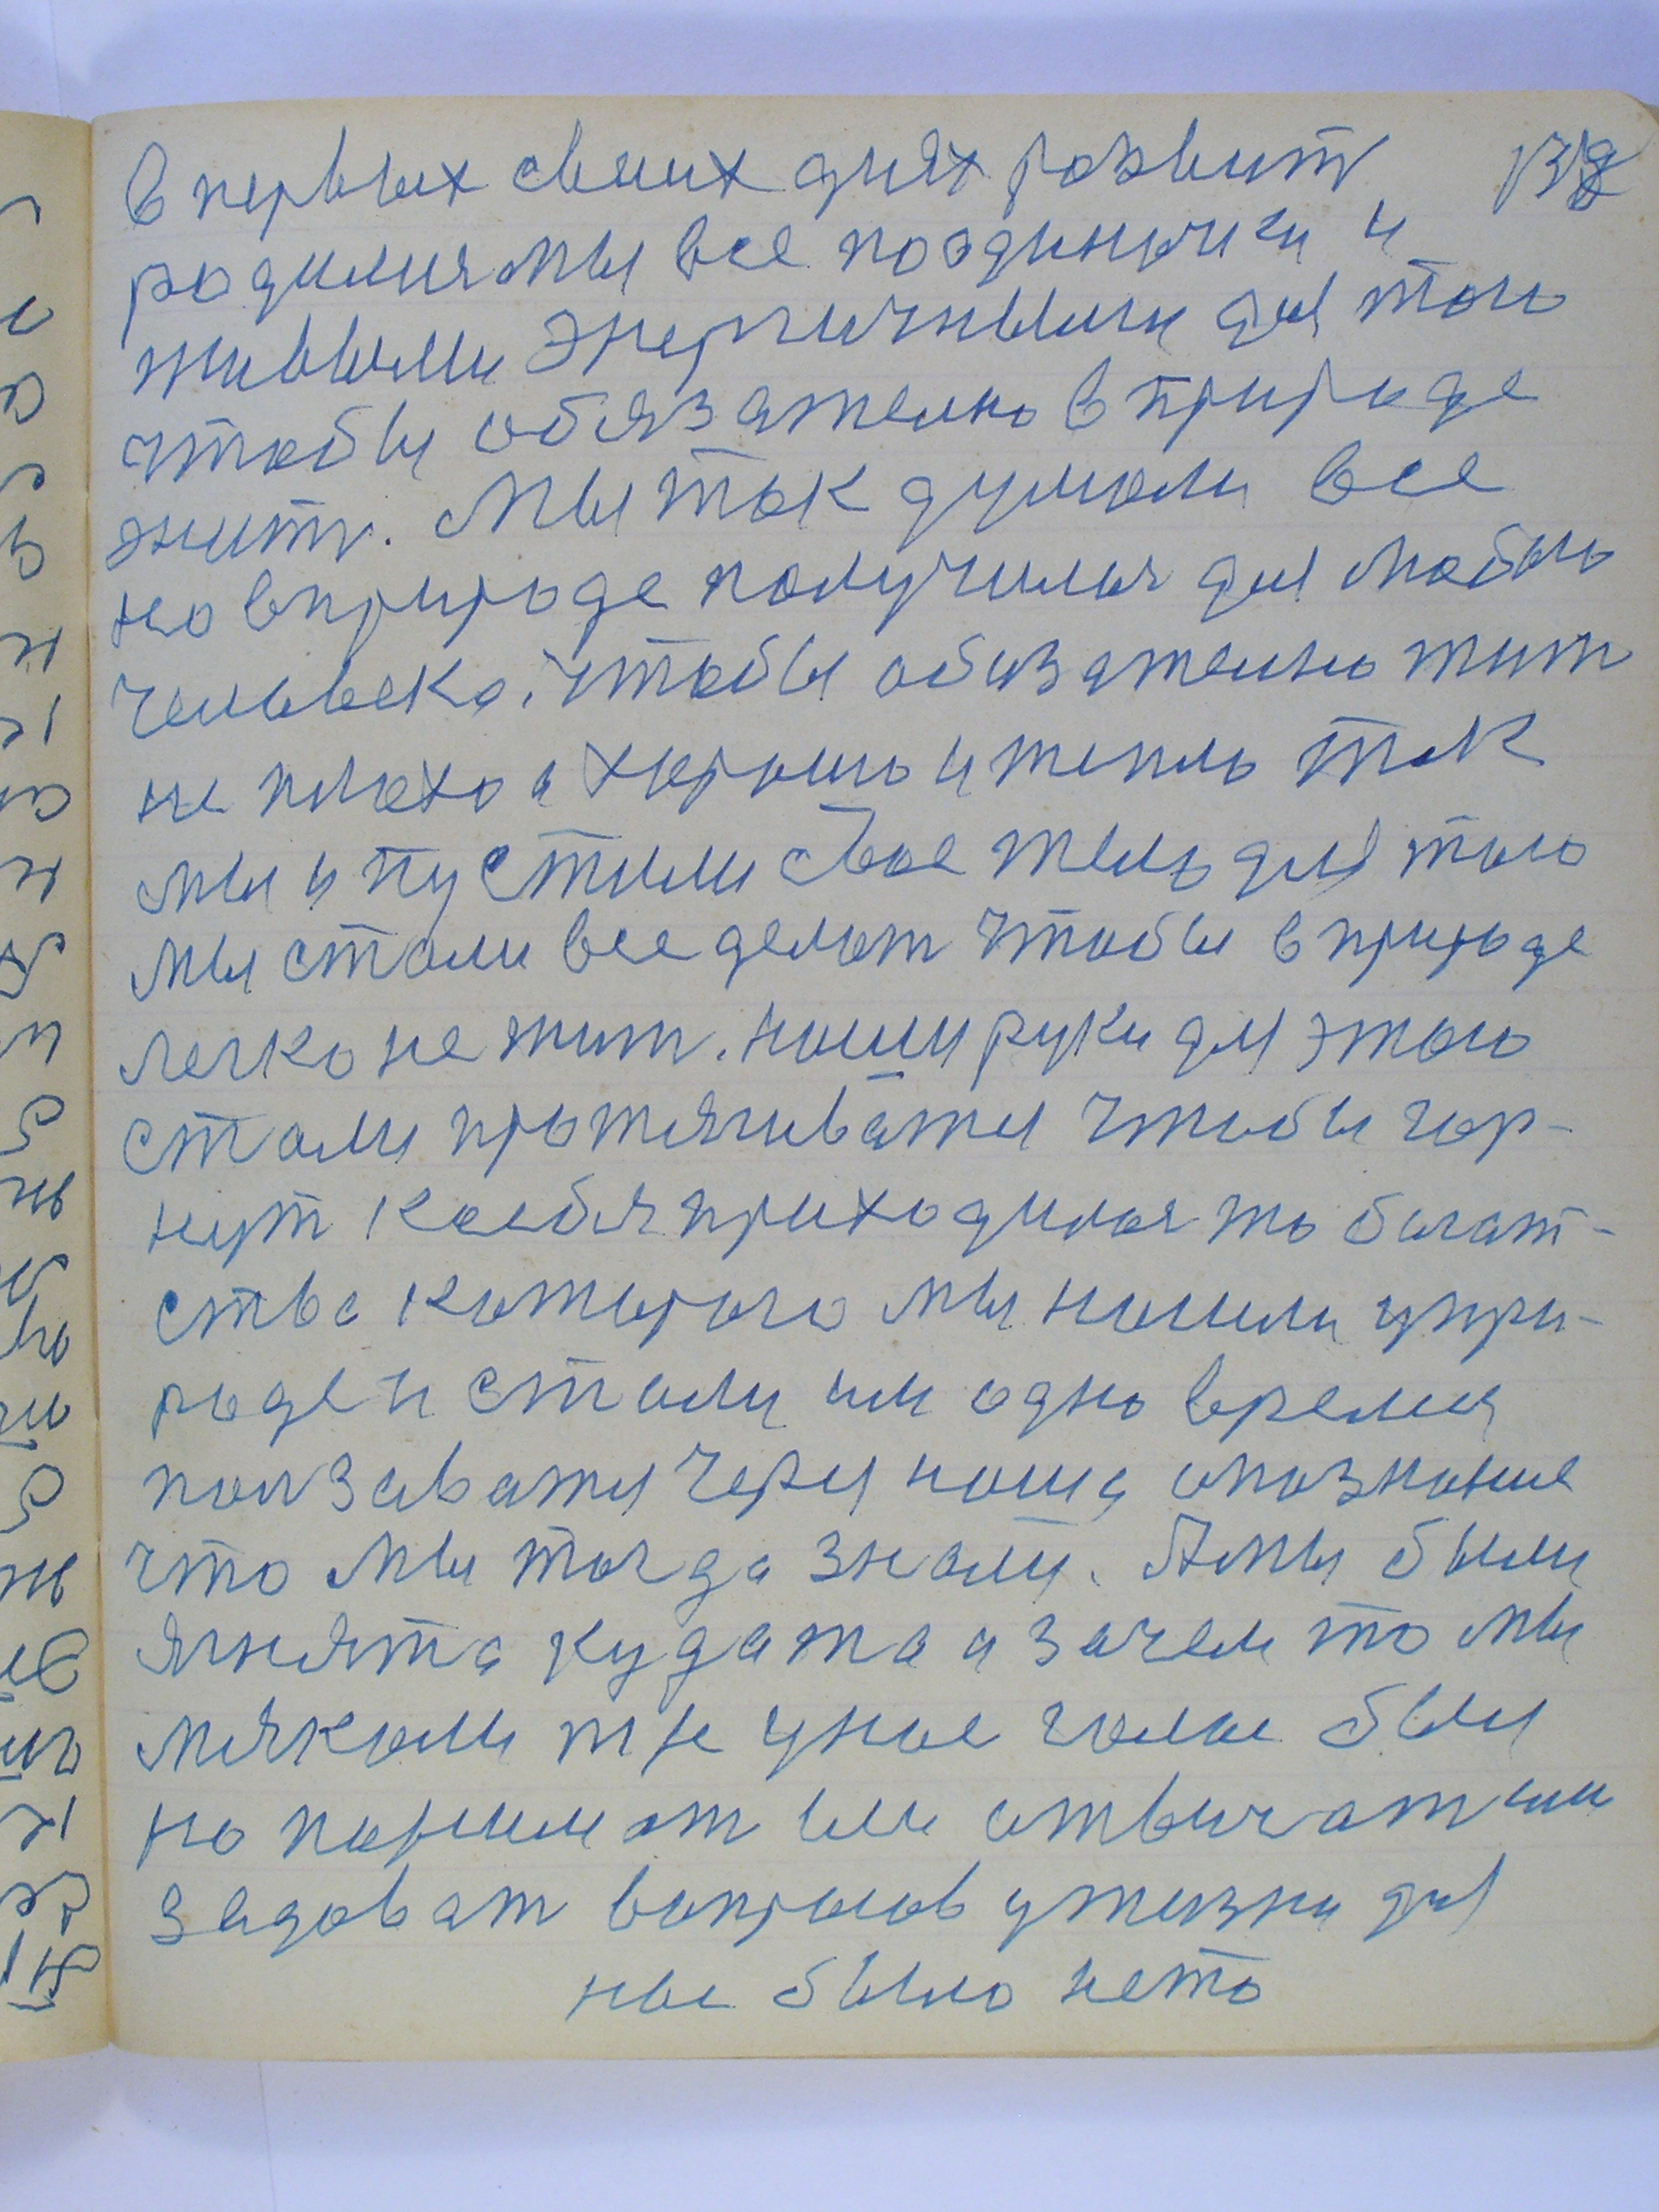 в первых своих днях розвит
родилися мы все поодиночки и
живыми энергичными для того
чтобы обязателно в природе
жит. Мы так думали все
но в природе получился для любого
человека. чтобы обизателно жит
не плохо а хорошо и тепло так
мы и пустили свое тело для того
мы стали все делат чтобы в природе
легко не жит. наши руки для этого
стали протягиватся чтобы гор-
нут ксебя приходилося то богат-
ства которого мы нашли упри-
роде и стали им одно времия
ползаватся через наша опознание
что мы тогда знали. А мы были
ягнята куда та а зачем то мы
мякали же унас голос был
но понимат или отвичат или
задават вопросов у жизни для
нас было нето